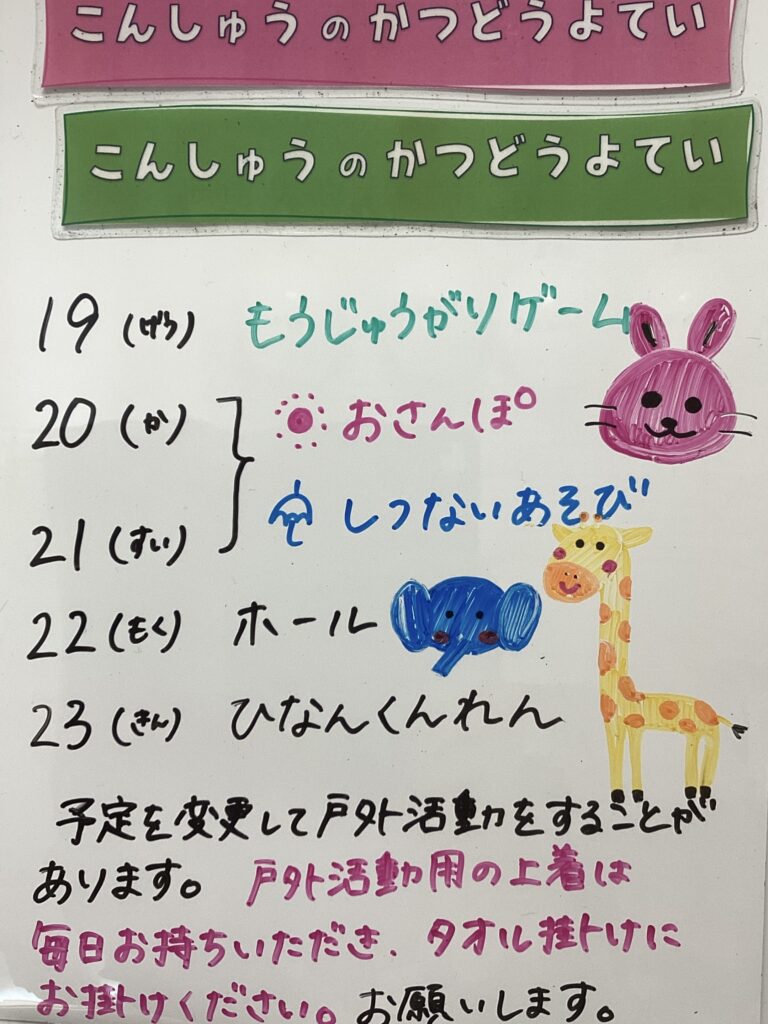 こんしゅうのかつどうよてい
こんしゅうのかつどうよてい
19(げつ) もうじゅうがりゲーム
20(か) おさんぽ
21(すい) しつないあそび
22(もく) ホール
23(きん) ひなんくんれん
予定を変更して戸外活動をすることが
あります。戸外活動用の上着は
毎日お持ちいただき、タオル掛けに
お掛けください。お願いします。